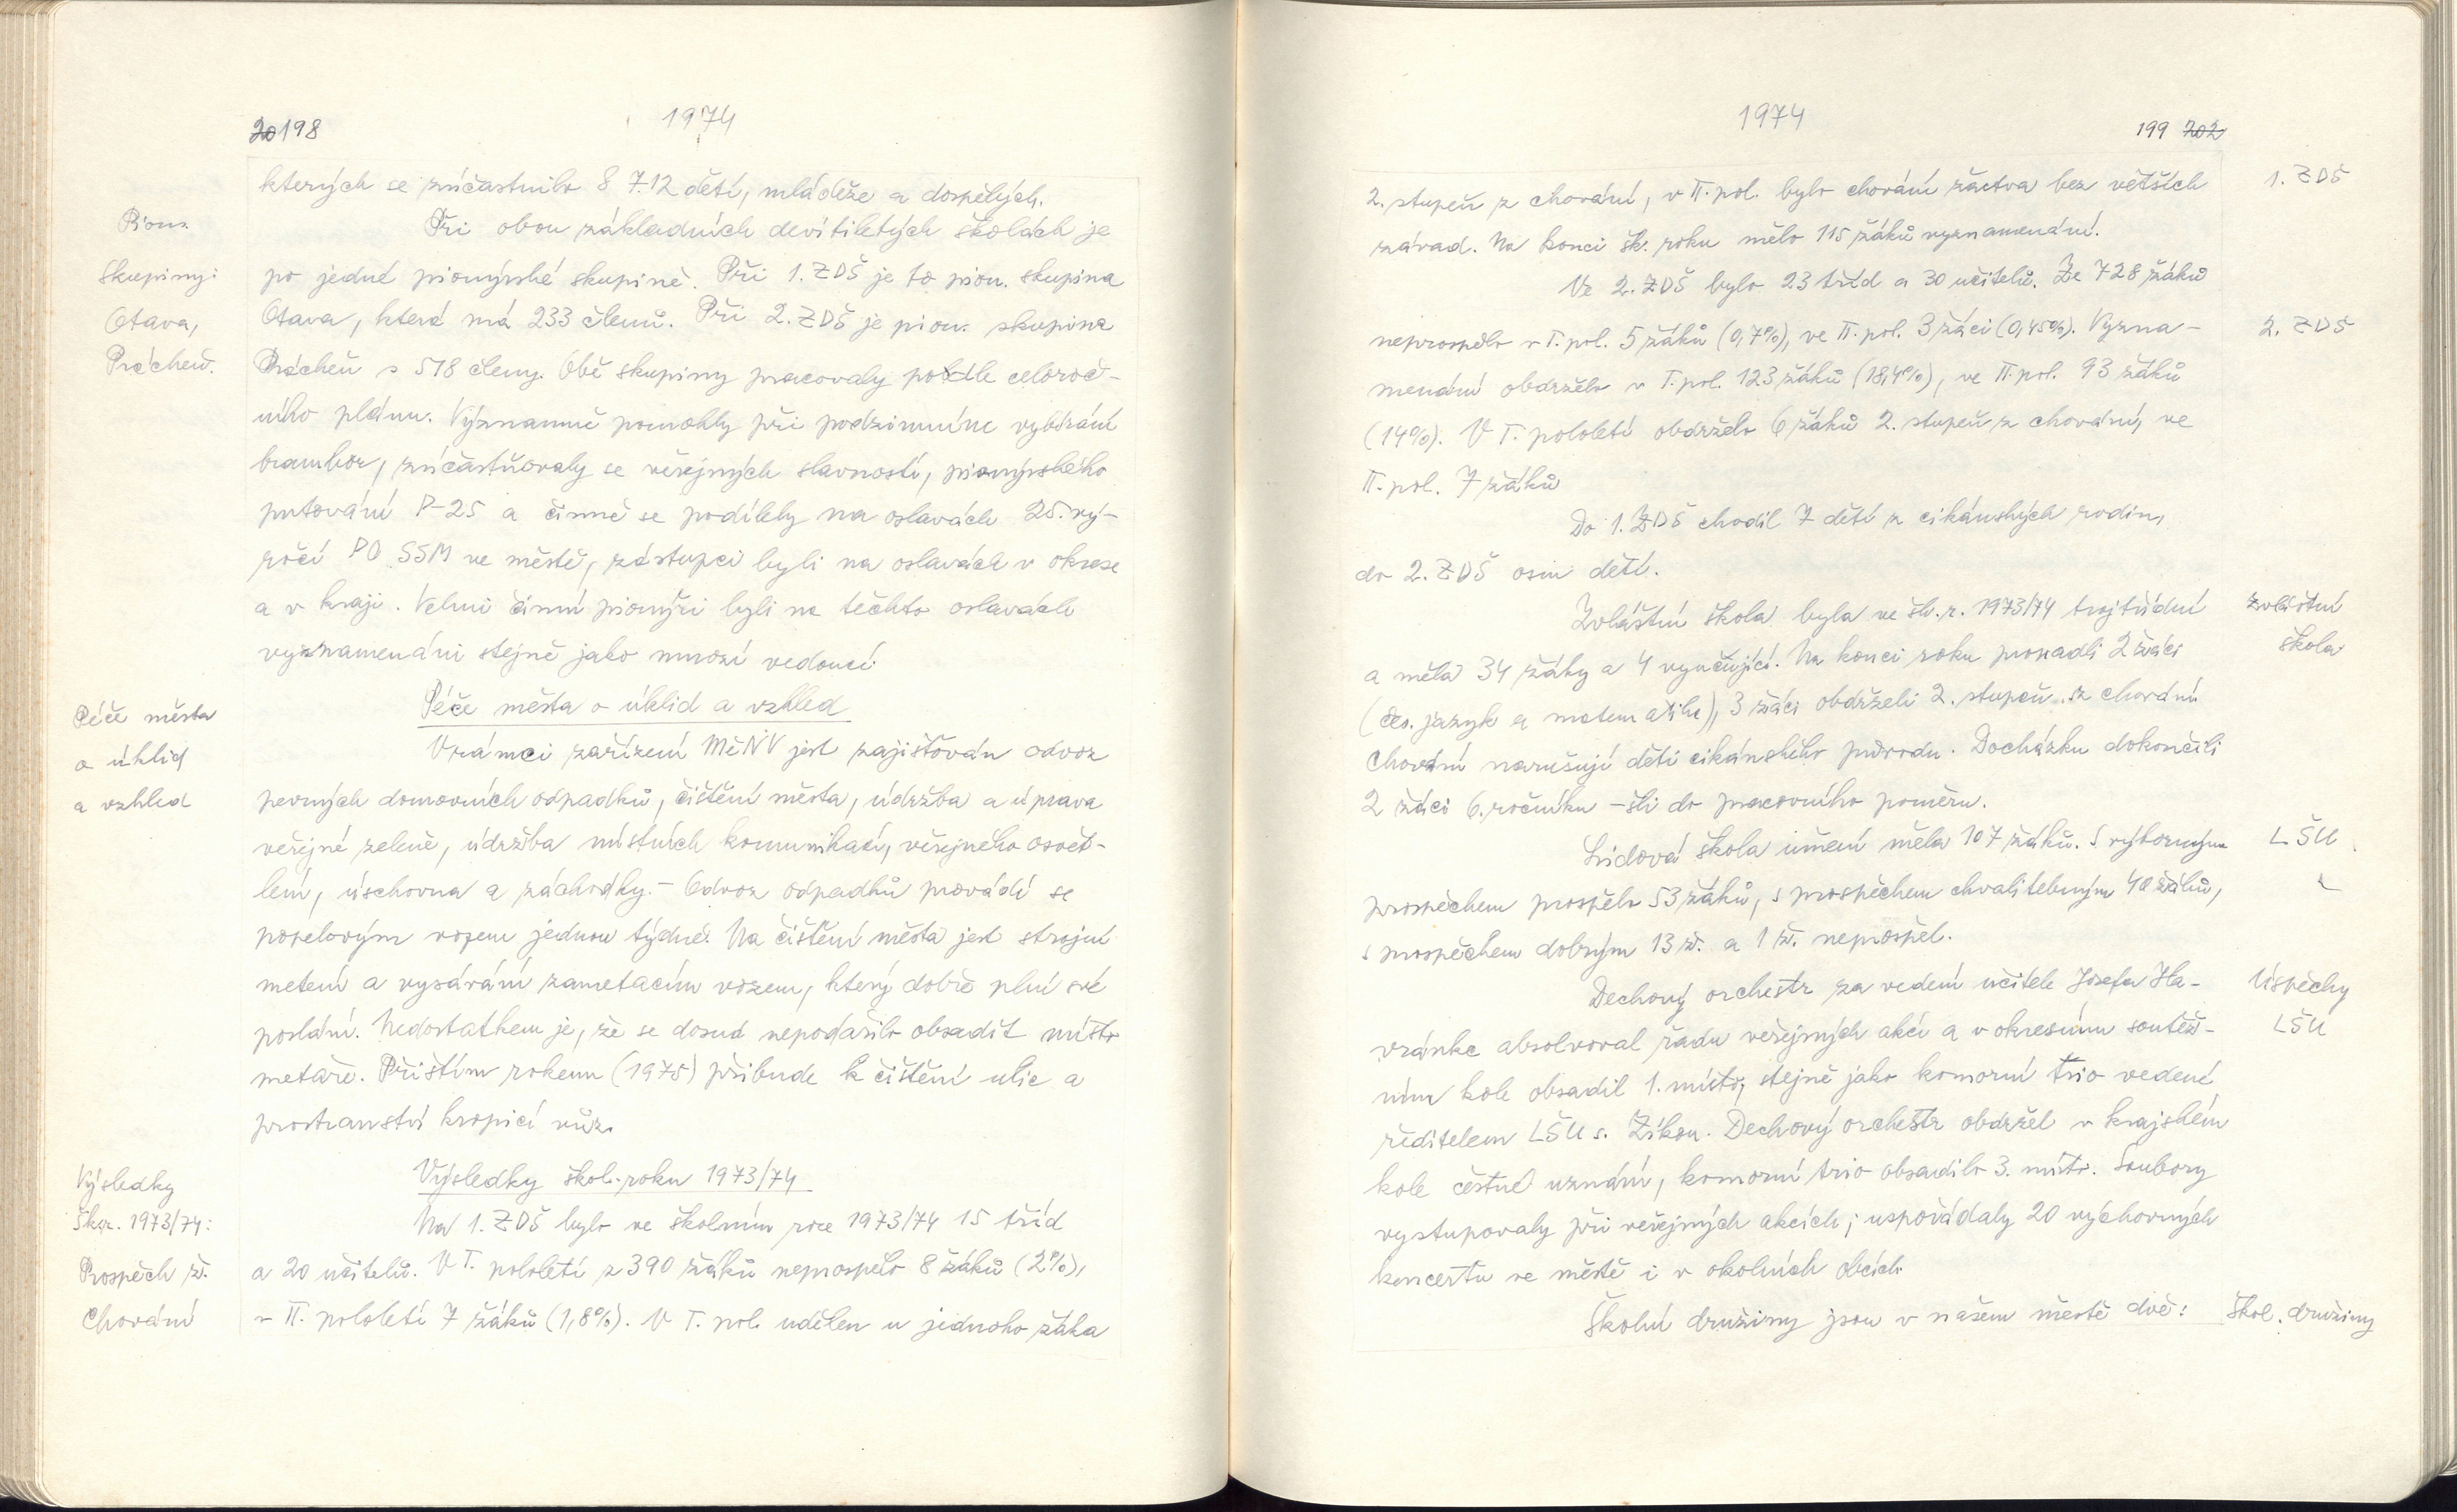 198
1974
kterých se zúčastnilo 8 712 dětí, mládeže a dospělých.
Pion.
Při obou základních devítiletých školách je
skupiny:
po jedné pionýrské skupině. Při 1. ZDŠ je to pion. skupina
Otava,
Otava, která má 233 členů. Při 2. ZDŠ je pion. skupina
Prácheň.
Prácheň s 518 členy. Obě skupiny pracovaly podle celoroč-
ního plánu. Významně pomohly při podzimním vybírání
brambor, zúčastňovaly se veřejných slavností, pionýrského
putování P-25 a činně se podílely na oslavách 25. vý-
ročí PO SSM ve městě, zástupci byli na oslavách v okrese
a v kraji. Velmi činní pionýři byli na těchto oslavách
vyznamenáni stejně jako mnozí vedoucí.
Péče města
Péče města o úklid a vzhled
o úklid
V rámci zařízení MěNV jest zajišťován odvoz
a vzhled
pevných domovních odpadků, čištění města, údržba a úprava
veřejné zeleně, údržba místních komunikací, veřejného osvět-
lení, úschovna a záchodky. - Odvoz odpadků provádí se
popelovým vozem jednou týdně. Na čištění města jest strojní
metení a vysávání zametacím vozem, který dobře plní své
poslání. Nedostatkem je, že se dosud nepodařilo obsadit místo
metaře. Příštím rokem (1975) přibude k čištění ulic a
prostranství kropicí vůz.
Výsledky
Výsledky škol. roku 1973/74
šk. r. 1973/74:
Na 1. ZDŠ bylo ve školním roce 1973/74 15 tříd
Prospěch ž.
a 20 učitelů. V I. pololetí z 390 žáků neprospělo 8 žáků (2%),
Chování
v II. pololetí 7 žáků (1,8%). V I. pol. udělen u jednoho žáka
1974
199 202
2. stupeň z chování, v II. pol. bylo chování žactva bez větších
1. ZDŠ
závad. Na konci šk. roku mělo 115 žáků vyznamenání.
Ve 2. ZDŠ bylo 23 tříd a 30 učitelů. Ze 728 žáků
neprospělo v I. pol. 5 žáků (0,7%), ve II. pol. 3 žáci (0,45%). Vyzna-
2. ZDŠ
menání obdrželo v I. pol. 123 žáků (18,4%), ve II. pol. 93 žáků
(14%). V I. pololetí obdrželo 6 žáků 2. stupeň z chování, ve
II. pol. 7 žáků
Do 1. ZDŠ chodil 7 dětí z cikánských rodin,
do 2. ZDŠ osm dětí.
Zvláštní škola byla ve šk. r. 1973/74 trojtřídní
Zvláštní
a měla 34 žáky a 4 vyučující. Na konci roku propadli 2 žáci
škola
(čes. jazyk a matematika), 3 žáci obdrželi 2. stupeň z chování.
Chování narušují děti cikánského původu. Docházku dokončili
2 žáci 6. ročníku - šli do pracovního poměru.
Lidová škola umění měla 107 žáků. S výborným
LŠU
prospěchem prospělo 53 žáků, s prospěchem chvalitebným 40 žáků,
s prospěchem dobrým 13 ž. a 1 ž. neprospěl.
Dechový orchestr za vedení učitele Josefa Ha-
Úspěchy
vránka absolvoval řadu veřejných akcí a v okresním soutěž-
LŠU
ním kole obsadil 1. místo, stejně jako komorní trio vedené
ředitelem LŠU s. Zíkou. Dechový orchestr obdržel v krajském
kole čestné uznání, komorní trio obsadilo 3. místo. Soubory
vystupovaly při veřejných akcích; uspořádaly 20 výchovných
koncertů ve městě i v okolních obcích.
Školní družiny jsou v našem městě dvě:
Škol. družiny